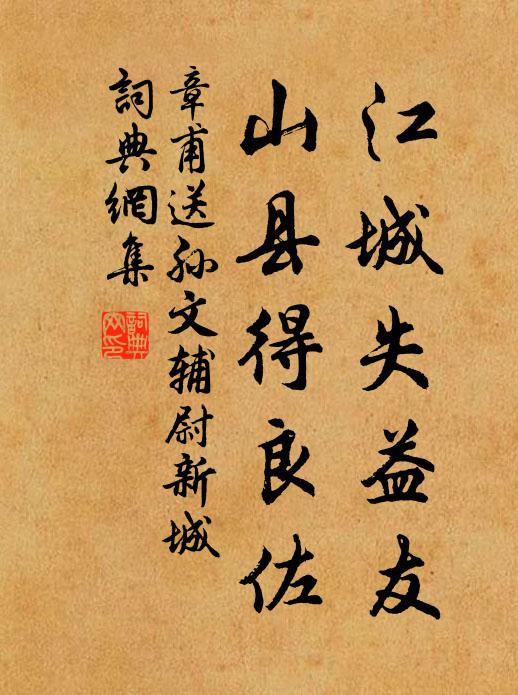 江城失益友
山县得良佐
章甫送孙文辅尉新城
詞典網集
詞典网印